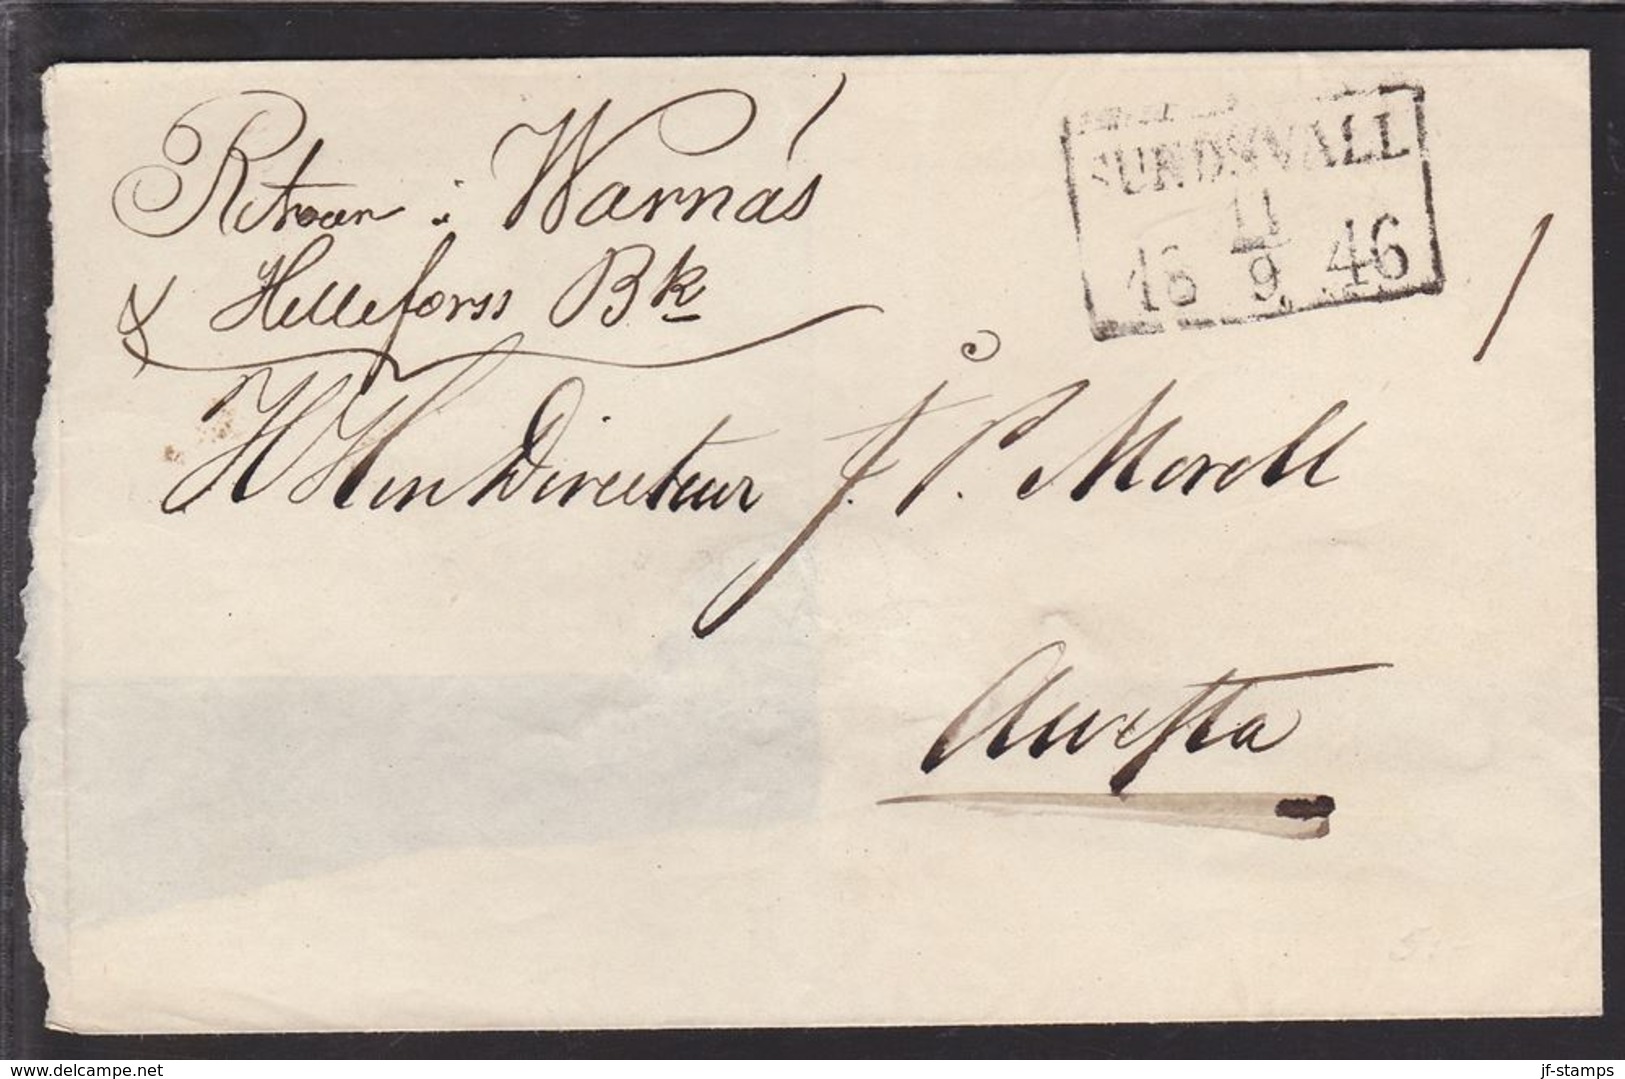 Retour : Warnäs
& Helleforss Bk
SUNDSVALL
11
18 9 46
H Herr Directeur J. P. Morell
Awesta
5:-
www.delcampe.net
jf-stamps